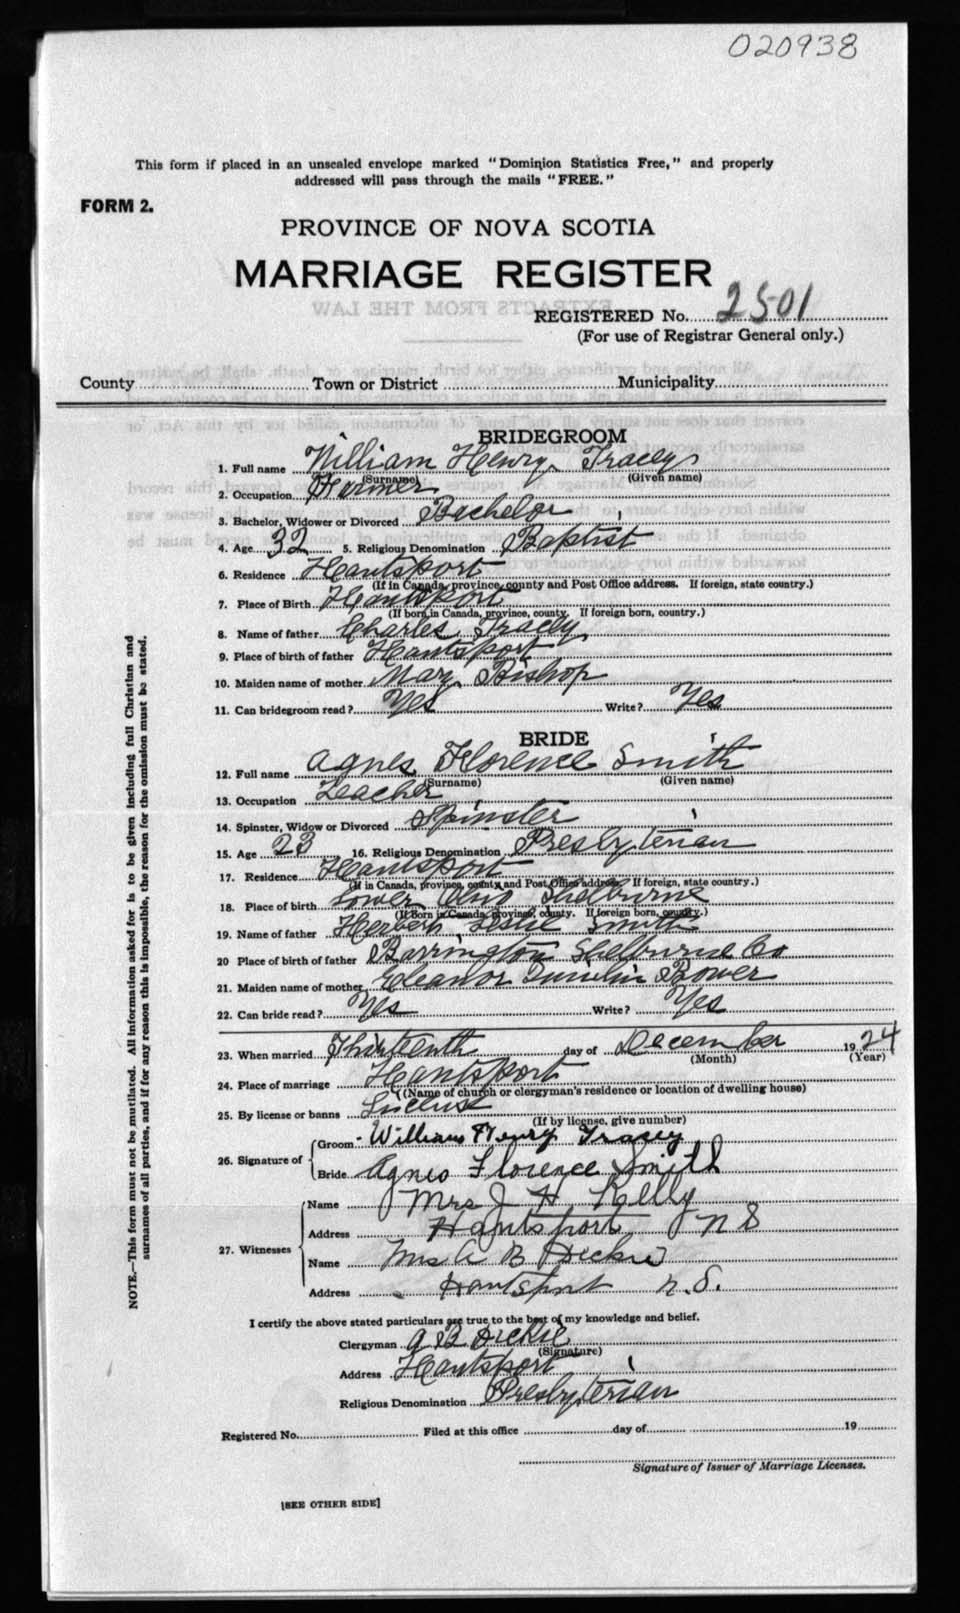 020938
This form if placed in an unsealed envelope marked "Dominion Statistics Free," and properly
addressed will pass through the mails "FREE."
FORM 2.
PROVINCE OF NOVA SCOTIA
MARRIAGE REGISTER
REGISTERED No. 2501
(For use of Registrar General only.)
County Town or District Municipality
BRIDEGROOM
1. Full name William Henry Tracey
(Surname) (Given name)
2. Occupation Farmer
3. Bachelor, Widower or Divorced Bachelor
4. Age 32 5. Religious Denomination Baptist
6. Residence Hantsport
(If in Canada, province, county and Post Office address. If foreign, state country.)
7. Place of Birth Hantsport
(If born in Canada, province, county. If foreign born, country.)
8. Name of father Charles Tracey
9. Place of birth of father Hantsport
10. Maiden name of mother Mary Bishop
11. Can bridegroom read? Yes Write? Yes
BRIDE
12. Full name Agnes Florence Smith
(Surname) (Given name)
13. Occupation Teacher
14. Spinster, Widow or Divorced Spinster
15. Age 23 16. Religious Denomination Presbyterian
17. Residence Hantsport
(If in Canada, province, county and Post Office address. If foreign, state country.)
18. Place of birth Lower Ohio Shelburne
(If Born in Canada, province, county. If foreign born, country.)
19. Name of father Herbert Leslie Smith
20 Place of birth of father Barrington Shelburne Co
21. Maiden name of mother Eleanor Bower
22. Can bride read? Yes Write? Yes
23. When married Thirteenth day of December 1924
(Month) (Year)
24. Place of marriage Hantsport
(Name of church or clergyman's residence or location of dwelling house)
25. By license or banns License
(If by license, give number)
26. Signature of Groom William Henry Tracey
Bride Agnes Florence Smith
27. Witnesses Name Mrs J H Kelly
Address Hantsport N S
Name Mrs A B Dickie
Address Hantsport N.S.
I certify the above stated particulars are true to the best of my knowledge and belief.
Clergyman A B Dickie
(Signature)
Address Hantsport
Religious Denomination Presbyterian
Registered No. Filed at this office day of 19
Signature of Issuer of Marriage Licenses.
[SEE OTHER SIDE]
NOTE.—This form must not be mutilated. All information asked for is to be given including full Christian and
surnames of all parties, and if for any reason this is impossible, the reason for the omission must be stated.